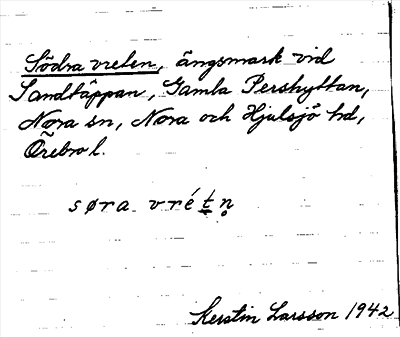 Södra vreten, ängsmark vid
Sandtäppan, Gamla Pershyttan,
Nora sn, Nora och Hjulsjö hd,
Örebro l.
søra vrét̲n̥
Kerstin Larsson 1942